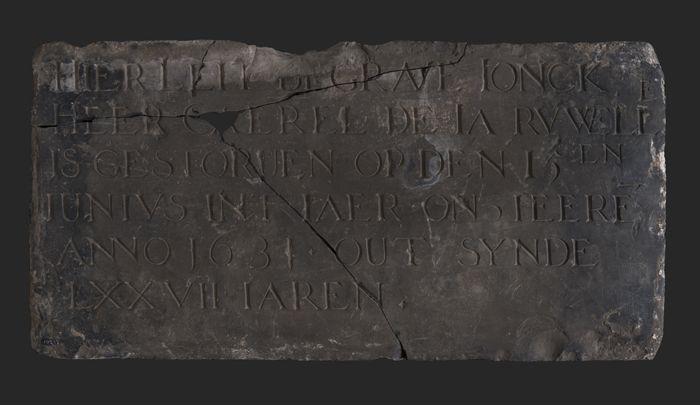 HIER LEIT BEGRAVE IONCK
HEER CAEREL DE LA RVWELLE
IS GESTORUEN OP DEN 15EN
IUNIVS INT IAER ONS HEERE
ANNO 1631 · OUT SYNDE
LXXVII IAREN .